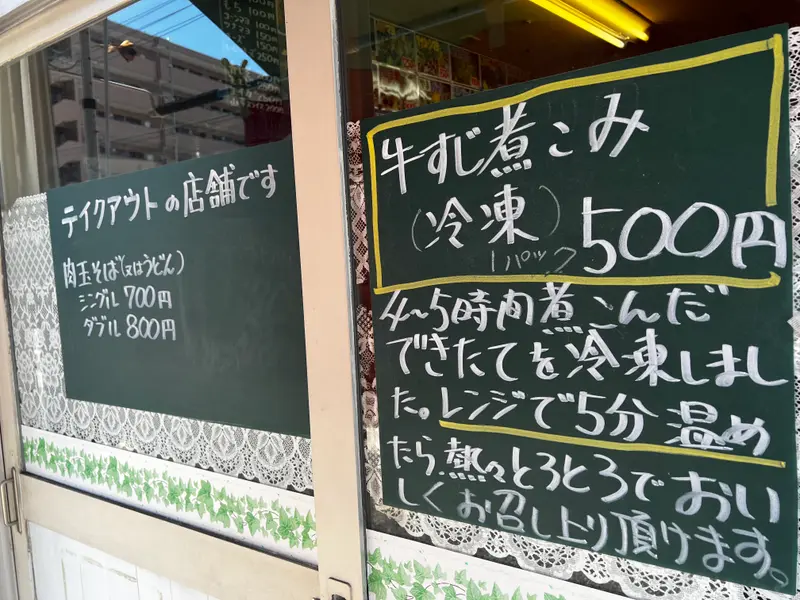 テイクアウトの店舗です
肉玉そば(又はうどん)
シングル 700円
ダブル 800円
牛すじ煮こみ
(冷凍)
1パック 500円
4〜5時間煮こんだ
できたてを冷凍しまし
た。レンジで5分温め
たら熱々とろとろでおい
しくお召し上り頂けます。